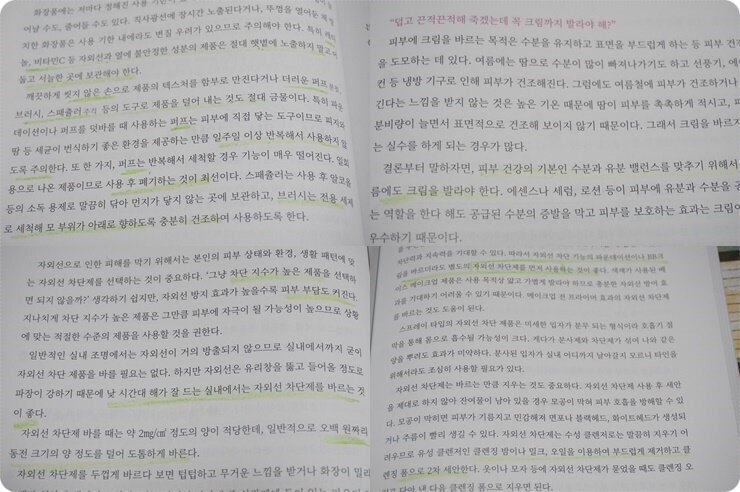 화장품에는 저마다 정해진 사용 기한이
어날 수도, 줄어들 수도 있다. 직사광선에 장시간 노출된다거나, 뚜껑을 열어둔
치한 화장품은 사용 기한 내에라도 변질 우려가 있으므로 주의해야 한다. 특히 레티
놀, 비타민C 등 자외선과 열에 불안정한 성분의 제품은 절대 햇볕에 노출하지 말고
둡고 서늘한 곳에 보관해야 한다.
깨끗하게 씻지 않은 손으로 제품의 텍스처를 함부로 만진다거나 더러운 퍼프
브러시, 스패출러 등의 도구로 제품을 덜어 내는 것도 절대 금물이다. 특히 파운
데이션이나 퍼프를 덧바를 때 사용하는 퍼프는 피부에 직접 닿는 도구이므로 피지와
땀 등 세균이 번식하기 좋은 환경을 제공하는 만큼 일주일 이상 반복해서 사용하지 않
도록 주의한다. 또 한 가지, 퍼프는 반복해서 세척할 경우 기능이 매우 떨어진다. 일회
용으로 나온 제품이므로 사용 후 폐기하는 것이 최선이다. 스패출러는 사용 후 알코올
등의 소독 용제로 말끔히 닦아 먼지가 닿지 않는 곳에 보관하고, 브러시는 전용 세제
로 세척해 모 부위가 아래로 향하도록 충분히 건조하여 사용하도록 한다.
“덥고 끈적끈적해 죽겠는데 꼭 크림까지 발라야 해?”
피부에 크림을 바르는 목적은 수분을 유지하고 표면을 부드럽게 하는 등 피부 건강
을 도모하는 데 있다. 여름에는 땀으로 수분이 많이 빠져나가기도 하고 선풍기, 에어
컨 등 냉방 기구로 인해 피부가 건조해진다. 그럼에도 여름철에 피부가 건조하거나
긴다는 느낌을 받지 않는 것은 높은 기온 때문에 땀이 피부를 촉촉하게 적시고, 피
분비량이 늘면서 표면적으로 건조해 보이지 않기 때문이다. 그래서 크림을 바르지
는 실수를 하게 되는 경우가 많다.
결론부터 말하자면, 피부 건강의 기본인 수분과 유분 밸런스를 맞추기 위해서
름에도 크림을 발라야 한다. 에센스나 세럼, 로션 등이 피부에 유분과 수분을 공
는 역할을 한다 해도 공급된 수분의 증발을 막고 피부를 보호하는 효과는 크림이
우수하기 때문이다.
자외선으로 인한 피해를 막기 위해서는 본인의 피부 상태와 환경, 생활 패턴에 맞
는 자외선 차단제를 선택하는 것이 중요하다. ‘그냥 차단 지수가 높은 제품을 선택하
면 되지 않을까?’ 생각하기 쉽지만, 자외선 방지 효과가 높을수록 피부 부담도 커진다.
지나치게 차단 지수가 높은 제품은 그만큼 피부에 자극이 될 가능성이 높으므로 상황
에 맞는 적절한 수준의 제품을 사용할 것을 권한다.
일반적인 실내 조명에서는 자외선이 거의 방출되지 않으므로 실내에서까지 굳이
자외선 차단 제품을 바를 필요는 없다. 하지만 자외선은 유리창을 뚫고 들어올 정도로
파장이 강하기 때문에 낮 시간대 해가 잘 드는 실내에서는 자외선 차단제를 바르는 것
이 좋다.
자외선 차단제 바를 때는 약 2mg/㎠ 정도의 양이 적당한데, 일반적으로 오백 원짜리
동전 크기의 양 정도를 덜어 도톰하게 바른다.
자외선 차단제를 두껍게 바르다 보면 텁텁하고 무거운 느낌을 받거나 화장이 밀리
차단력과 지속력을 기대할 수 있다. 따라서 자외선 차단 기능의 파운데이션이나 BB크
림을 바르더라도 별도의 자외선 차단제를 먼저 사용하는 것이 좋다. 색채가 사용된 베
이스 메이크업 제품은 사용 목적상 얇고 가볍게 발라야 하므로 충분한 자외선 방어 효
과를 기대하기 어려울 수 있기 때문이다. 메이크업 전 프라이머 효과의 자외선 차단제
를 바르는 것도 도움이 된다.
스프레이 타입의 자외선 차단 제품은 미세한 입자가 분무 되는 형식이라 호흡기 점
막을 통해 몸으로 흡수될 가능성이 크다. 게다가 분사제와 차단제가 섞여 나와 같은
양을 뿌려도 효과가 미약하다. 분사된 입자가 실내 어디까지 날아갈지 모르니 타인을
위해서라도 조심히 사용할 필요가 있다.
자외선 차단제는 바르는 만큼 지우는 것도 중요하다. 자외선 차단제 사용 후 세안
을 제대로 하지 않아 잔여물이 남아 있을 경우 모공이 막혀 피부 호흡을 방해할 수 있
다. 모공이 막히면 피부가 기름지고 민감해져 면포나 블랙헤드, 화이트헤드가 생성되
거나 주름이 빨리 생길 수 있다. 자외선 차단제는 수성 클렌저로는 말끔히 지우기 어
려우므로 유성 클렌저인 클렌징 밤이나 밀크, 오일을 이용하여 부드럽게 제거하고 클
렌징 폼으로 2차 세안한다. 옷이나 모자 등에 자외선 차단제가 묻었을 때도 클렌징 오